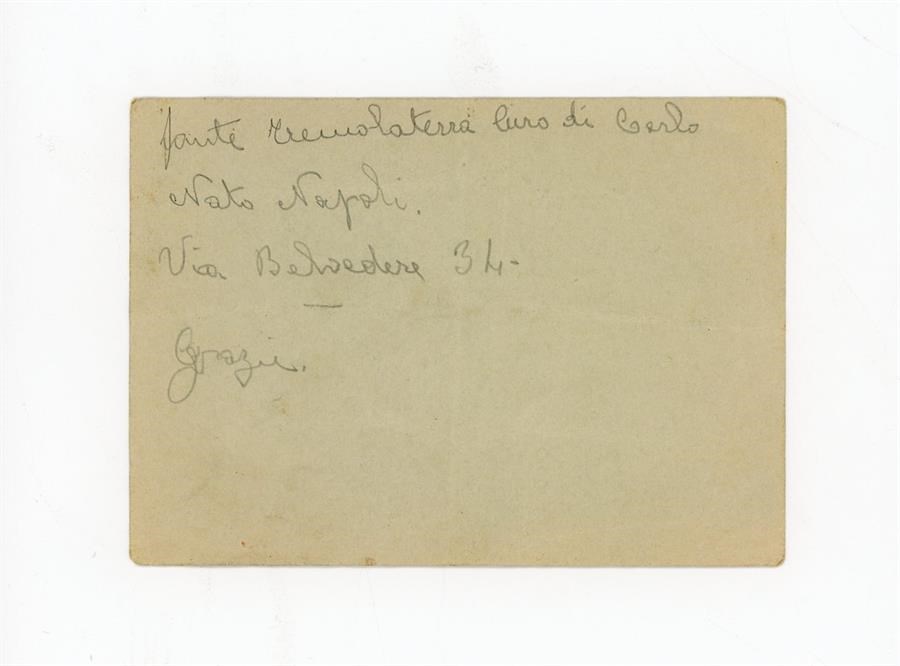 fante Tremolaterra Ciro di Carlo
Nato Napoli.
Via Belvedere 34-
Grazie.